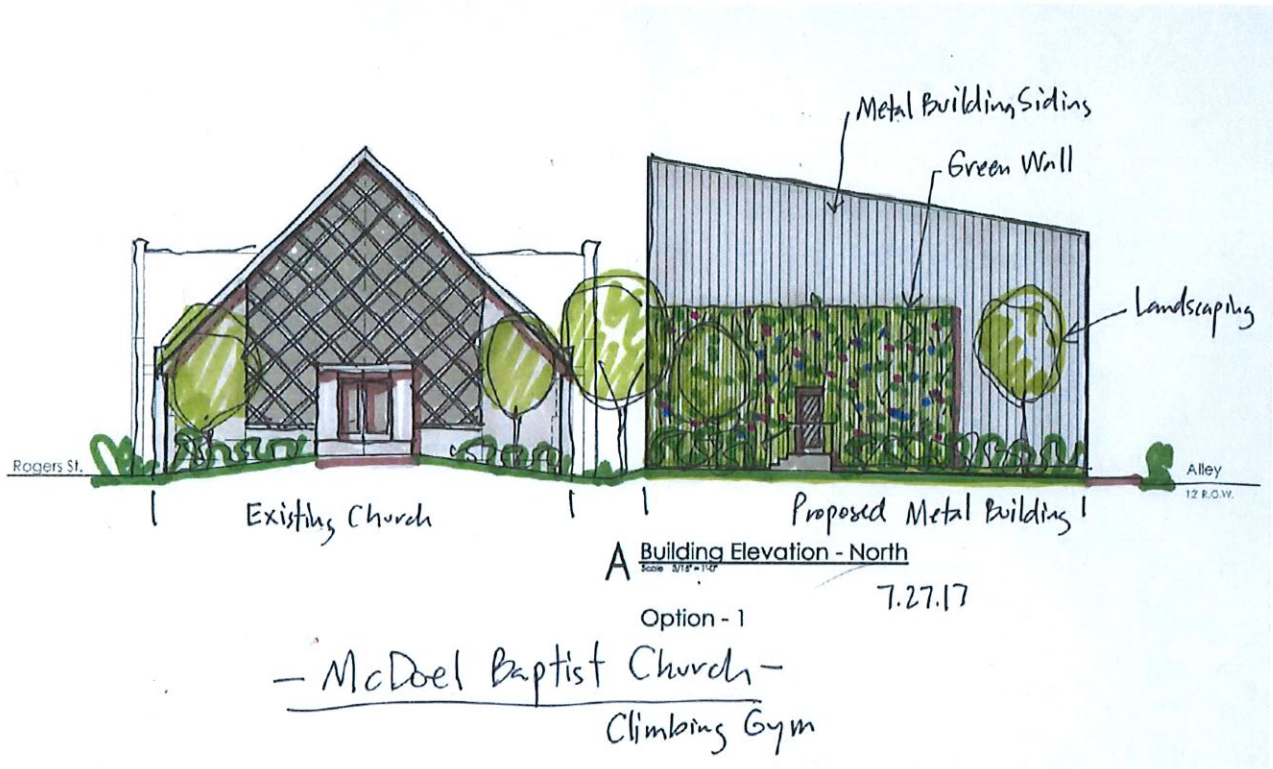 Metal Building Siding
Green Wall
Landscaping
Rogers St.
Alley
12 R.O.W.
Existing Church
Proposed Metal Building
A Building Elevation - North
Scale 3/16" = 1'-0"
7.27.17
Option - 1
- McDoel Baptist Church -
Climbing Gym